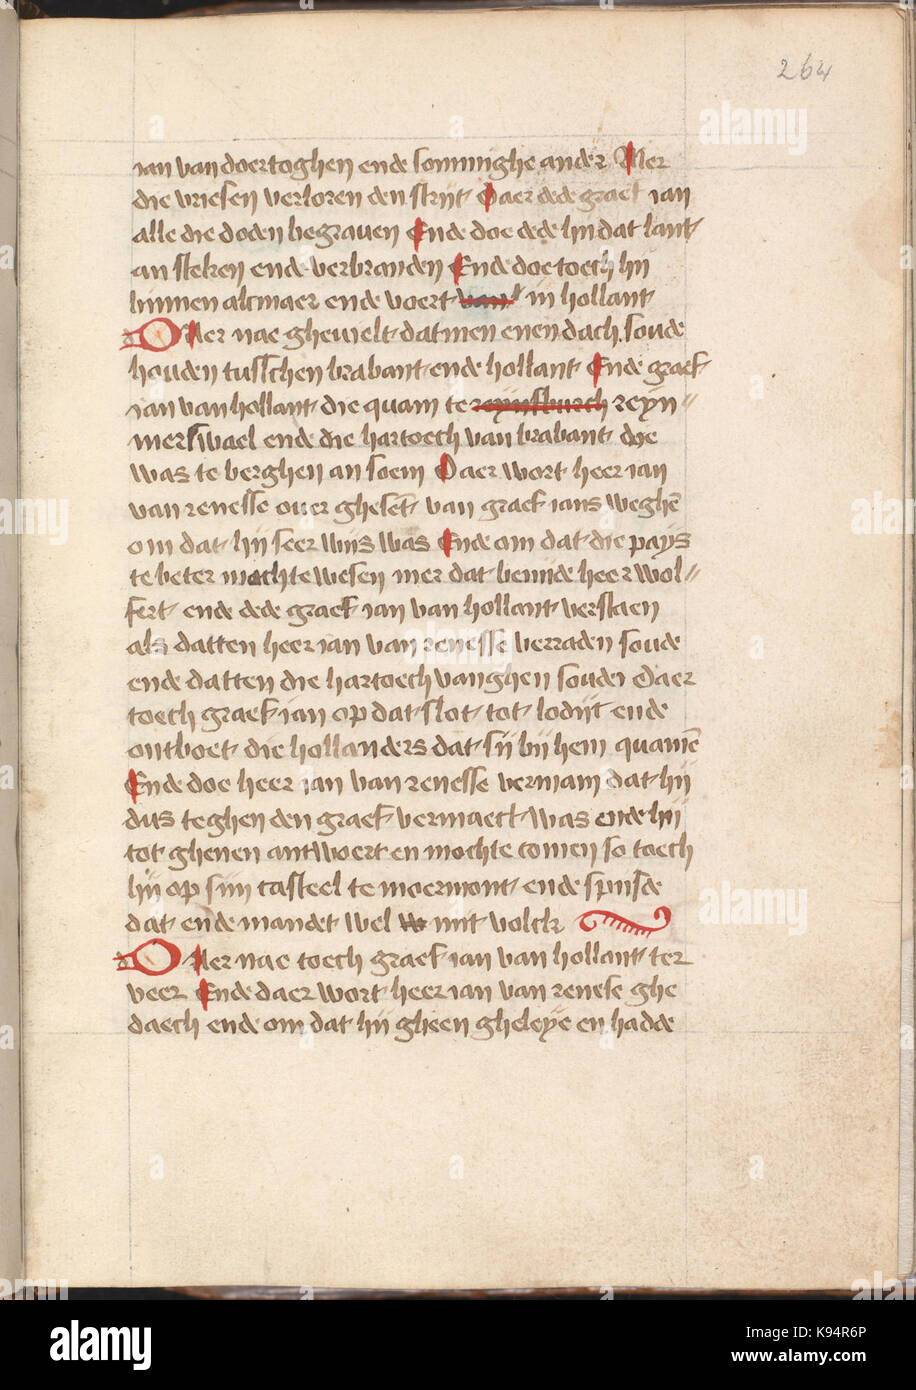 264
ian van doertoghen ende sommighe ander Mer
die vriesen verloren den strijt Daer dede graef ian
alle die doden begraven Ende doe dede hij dat lant
an steken ende verbranden Ende doe toech hij
binnen alcmaer ende voert van in hollant
Daer nae ghevielt datmen enen dach soude
houden tusschen brabant ende hollant Ende graef
ian van hollant die quam te reyn
merswael ende die hartoech van brabant die
was te berghen an soem Daer wort heer ian
van renesse over ghesent van graef ians weghē
om dat hij seer wijs was Ende om dat die pays
te beter mochte wesen mer dat benide heer wol
fert ende dede graef ian van hollant verstaen
als datten heer ian van renesse verraden soude
ende datten die hartoech vanghen soude Daer
toech graef ian op dat slot tot lodijc ende
ontboet die hollanders dat sij bij hem quamē
Ende doe heer ian van renesse vernam dat hij
dus teghen den graef vermaect was ende hij
tot ghenen antwoert en mochte comen so toech
hij op sijn casteel te moermont ende spijsde
dat ende mandet wel mit volck
Daer nae toech graef ian van hollant ter
veer Ende daer wort heer ian van renesse ghe
daech ende om dat hij gheen gheleye en hadde
alamy
alamy
Image ID: K94R6P
www.alamy.com